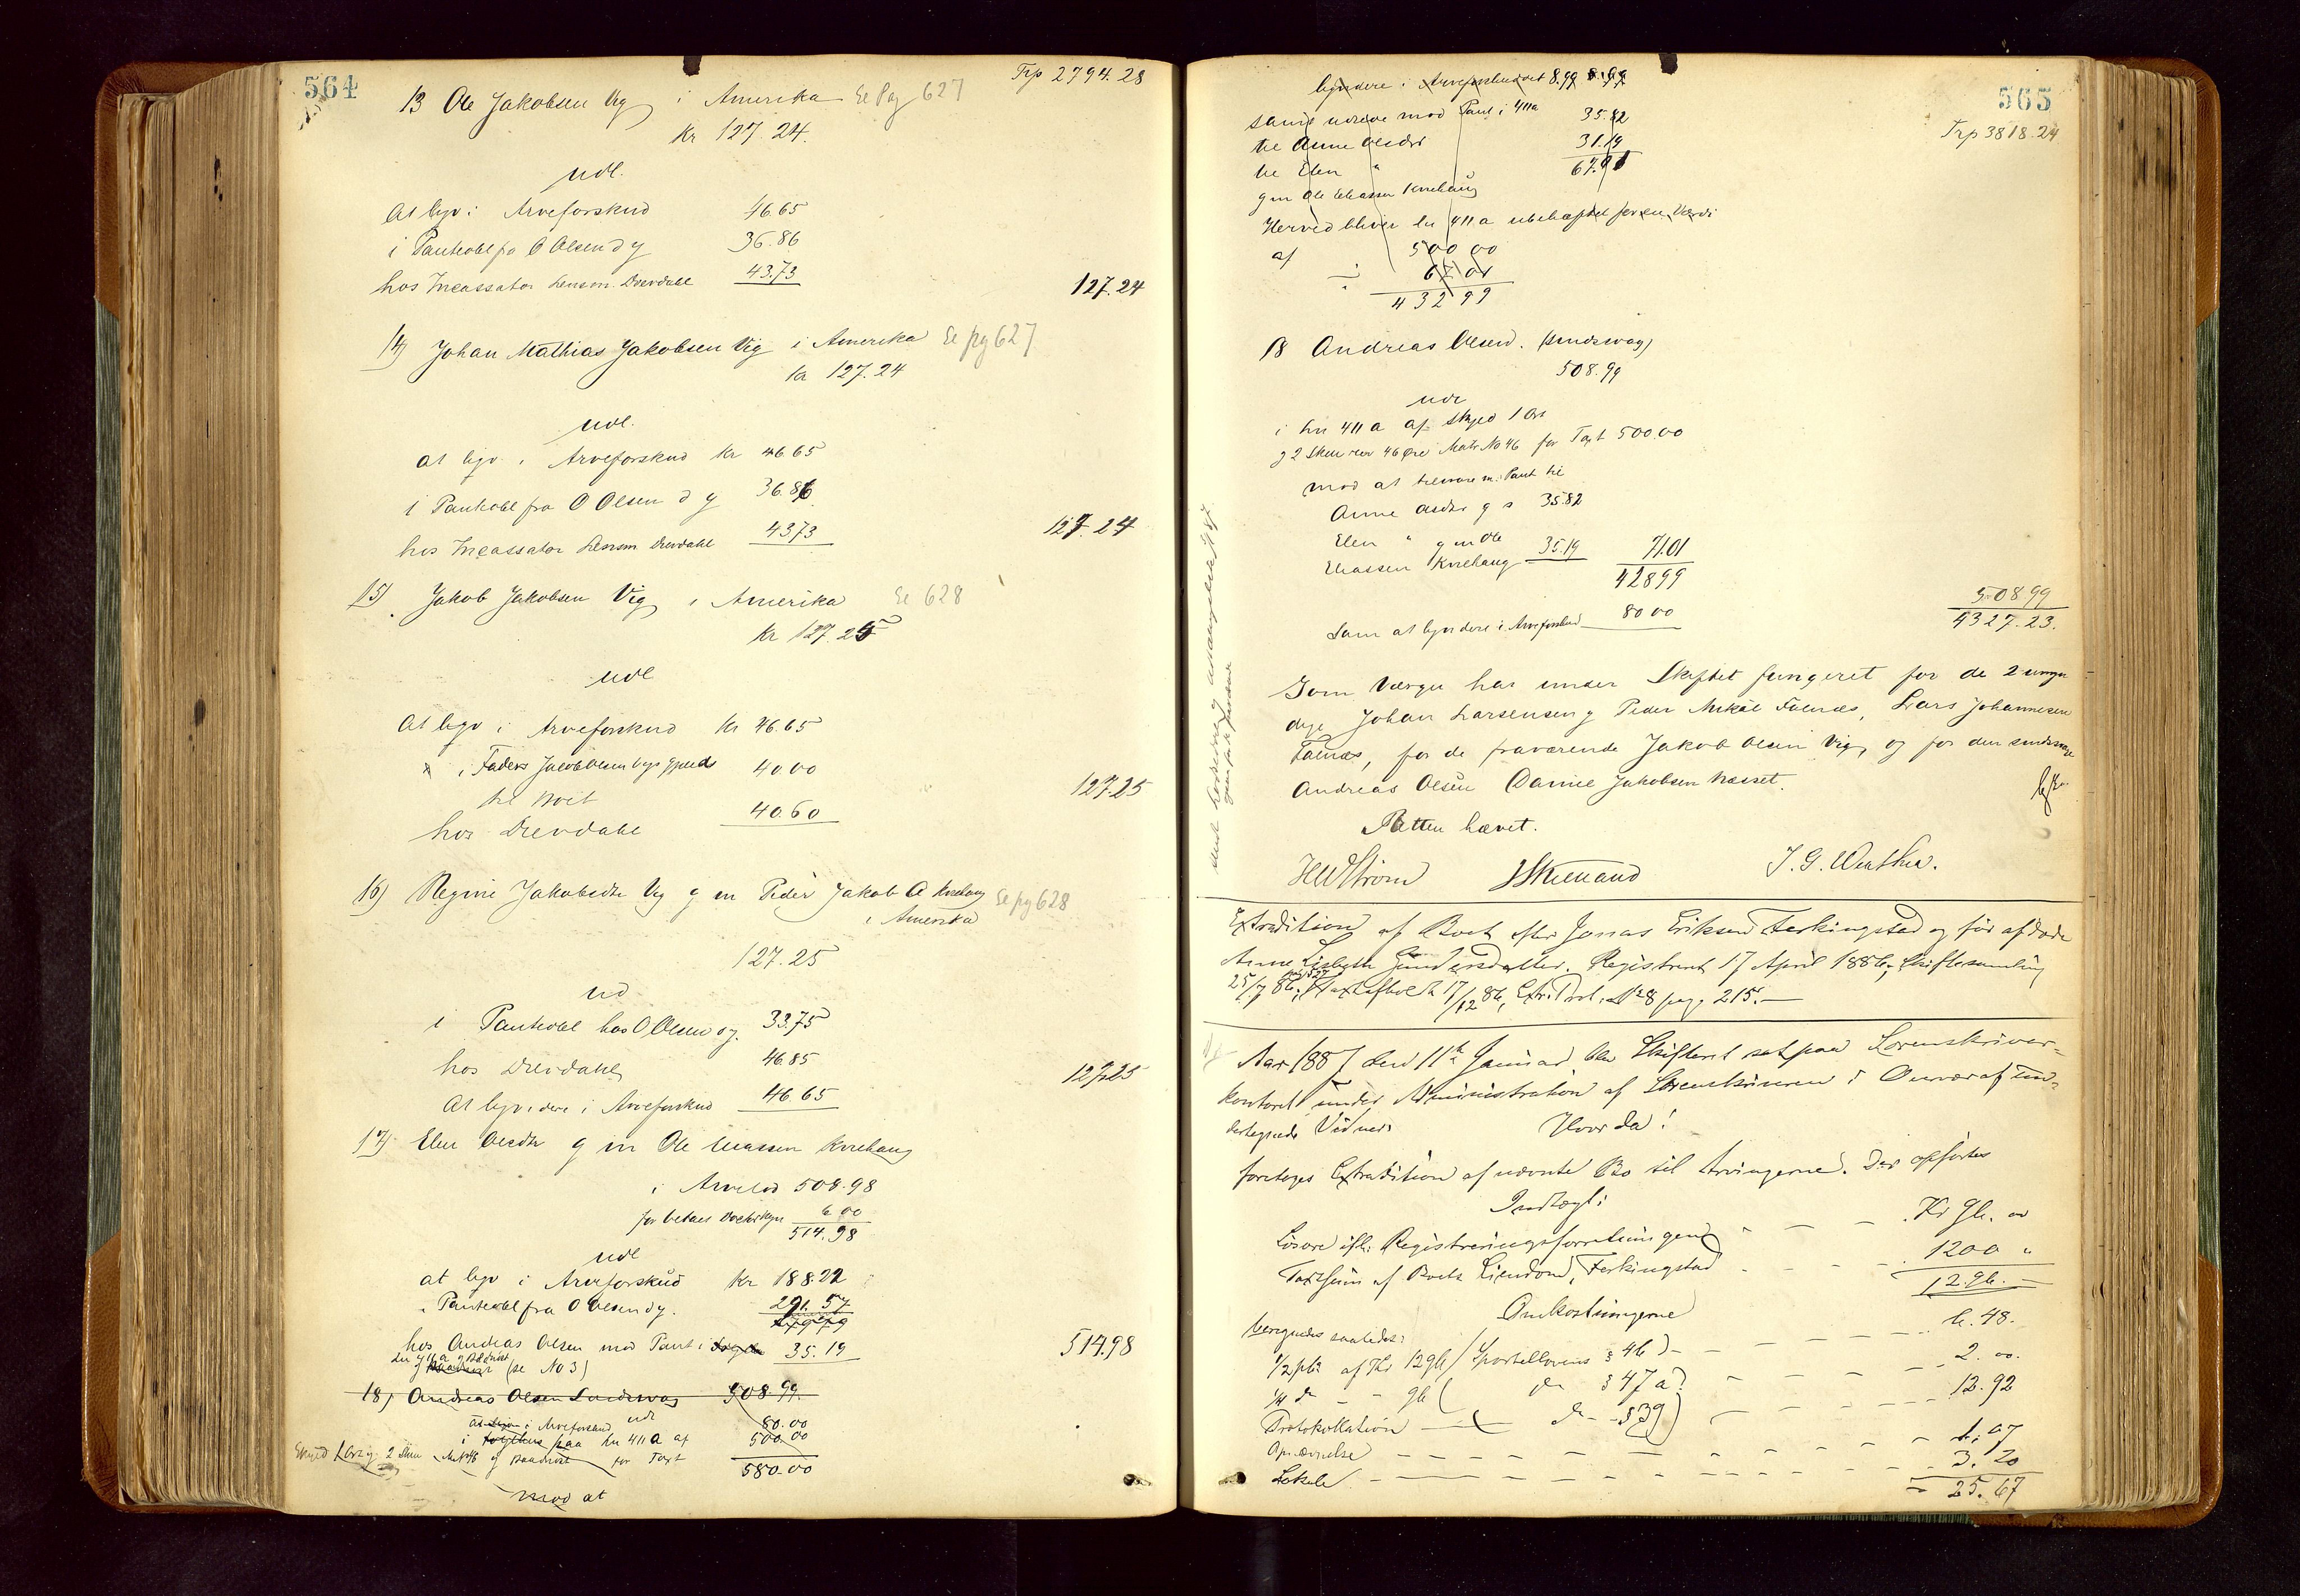 564
Trp 2794.28
13 Ole Jakobsen Vig i Amerika Se Pag 627
Kr 127.24.
udl.
At lign i Arveforskud 46.65
i Panteobl fra O Olsen d y 36.86
hos Incassator Lensm. Drevdahl 43.73
127.24
14) Johan Mathias Jakobsen Vig i Amerika Se pg 627
Kr 127.24
udl.
at lign i Arveforskud Kr 46.65
i Panteobl fra O Olsen d y 36.86
hos Incassator Lensm Drevdahl 43.73
127.24
15) Jakob Jakobsen Vig i Amerika Se 628
Kr 127.25
udl
At lign i Arveforskud Kr 46.65
i Faders Jakob Olsen Vigs Gjæld 40.00
til Boet
hos Drevdahl 40.60
127.25
16) Regine Jakobsdtr Vig g m Peder Jakob A Kvilhaug Se pg 628
i Amerika
127.25
ud
i Panteobl hos O Olsen d y. 33.75
hos Drevdahl 46.85
At lignidere i Arveforskud 46.65
127.25
17) Elen Olsdtr g m Ole Eliassen Kvilhaug
i Arvelod 508.98
for betalt 6 00
514.98
udl
at lign i Arveforskud Kr 188.22
i Panteobl fra O Olsen d y. 291.57
hos Andreas Olsen mod Pant i 35.19
Ln 411 a (se No 3)
514.98
18) Andreas Olsen Sindsvag 508.99.
udl
at lign i Arveforskud 80.00
i paa Ln 411 a af 500.00
Skyld 1 Ort 2 Skill Mat No 46 for Taxt
580.00
mod at
565
Trp 3818.24
lignidere i Arveforskudet 8.99 8.99
samt udrede mod Pant i 411a
til Anne Olsdtr 35.82
til Elen " 31.19
g m Ole Eliassen Kvilhaug 67.01
Herved bliver Ln 411 a ubehæftet for en Værdi
af 500 00
÷ 67 01
432 99
18 Andreas Olsen. (sindsvag)
508.99
udl
i Ln 411 a af Skyld 1 Ort
og 2 Skill rev 46 Øre Matr No 46 for Taxt 500.00
mod at tilsvare m. Pant til
Anne Olsdtr 35.82
Elen " g m Ole
Eliassen Kvilhaug 35.19 71.01
428 99
Sam at lignidere i Arveforskud 80 00
508 99
4327.23.
Som Værger har under Skiftet fungeret for de 2 umyn-
dige Johan Larsensen og Peder Mikal Falnæs, Lars Johannesen
Falnæs, for de fraværende Jakob Olsen Vig, og for den sindssvage
Andreas Olsen Daniel Jakobsen Næsset.
Retten hævet.
HWStrøm
J. G. Winther.
Extradition af Boet efter Jonas Eriksen Ferkingstad og før afdøde
Anne Lisbeth Gundersdatter. Registreret 17 April 1886, Skiftesamling
25/9 86, afholdt 17/12 86, Extr. Prot. No 8 pag. 215.—
Aar 1887 den 11te Januar blev Skifteret sat paa Sorenskriver-
kontoret under Administration af Sorenskriveren i Overvær af un-
dertegnede Vidner.
Hvorda:
foretoges Extradition af nævnte Bo til Arvingerne. Der opførtes
Indtægt:
Løsøre ifl. Registreringsforretningen — — — Kr 96. 00
Taxtsum af Boets Eiendom, Ferkingstad — — 1200 "
1296.—
Omkostningerne
beregnedes saaledes:
1/2 pCt af Kr 1296 (Sportellovens § 46) — — 6.48.
1/4 do — 96 ( do § 47a) — — 2. 00.
Protokollation — ( do — § 39) — — 12.92
Opnævnelse — — — 1.07
Lokale — — — 3.20
— 25.67